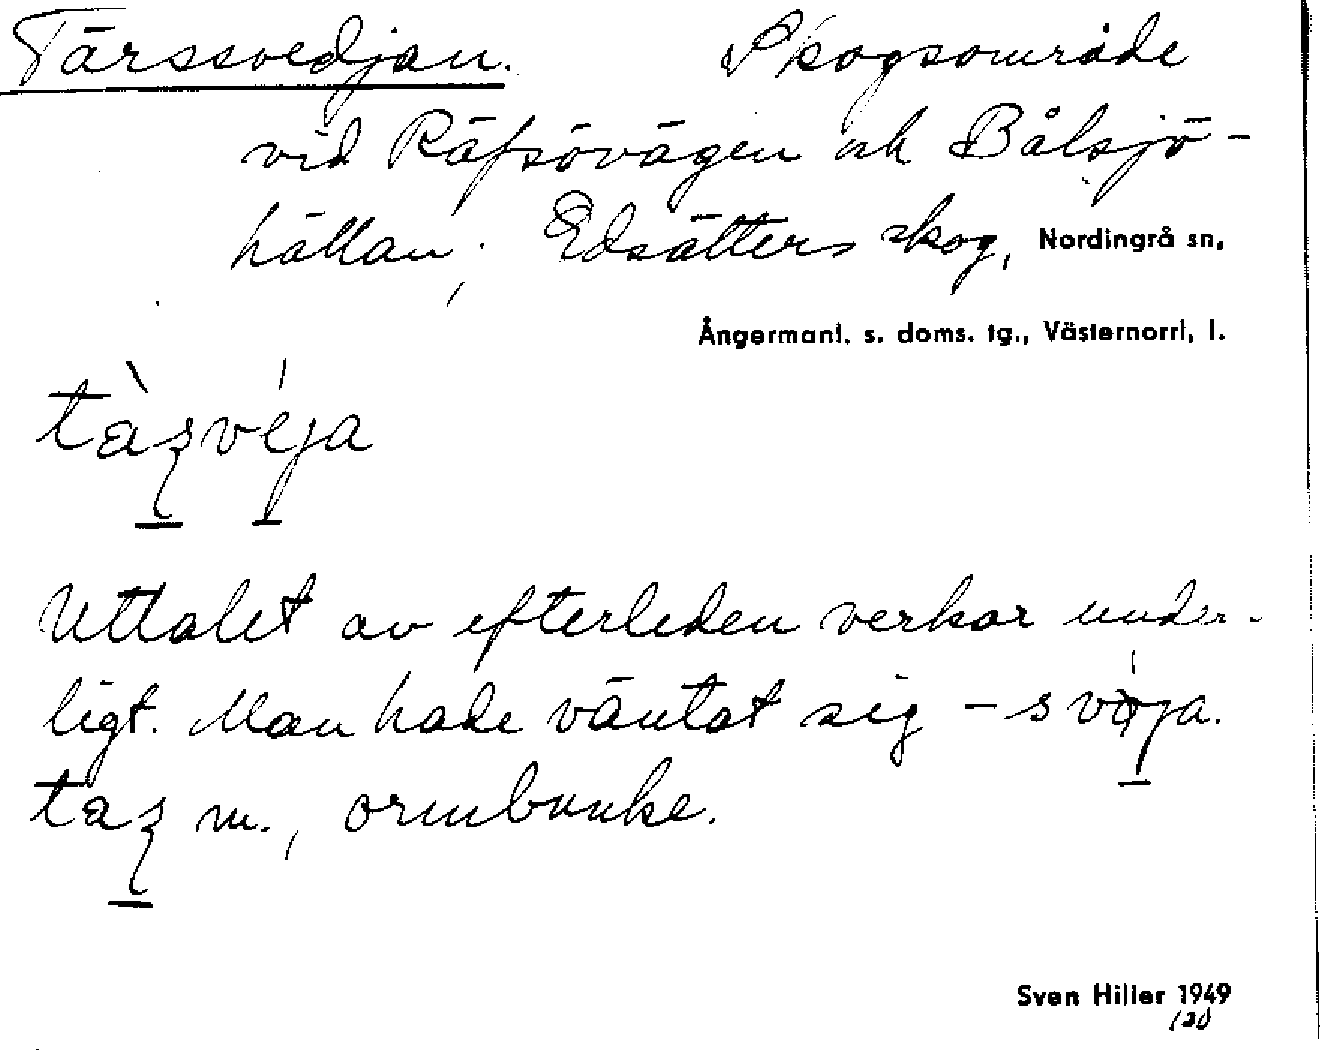 Tärssvedjan. Skogsområde
vid Räfsövägen och Bålsjö-
hällan; Edsätters skog, Nordingrå sn,
Ångermanl. s. doms. tg., Västernorrl. l.
tàʂvéja
Uttalet av efterleden verkar under-
ligt. Man hade väntat sig -svöja.
taʂ m., ormbunke.
Sven Hiller 1949